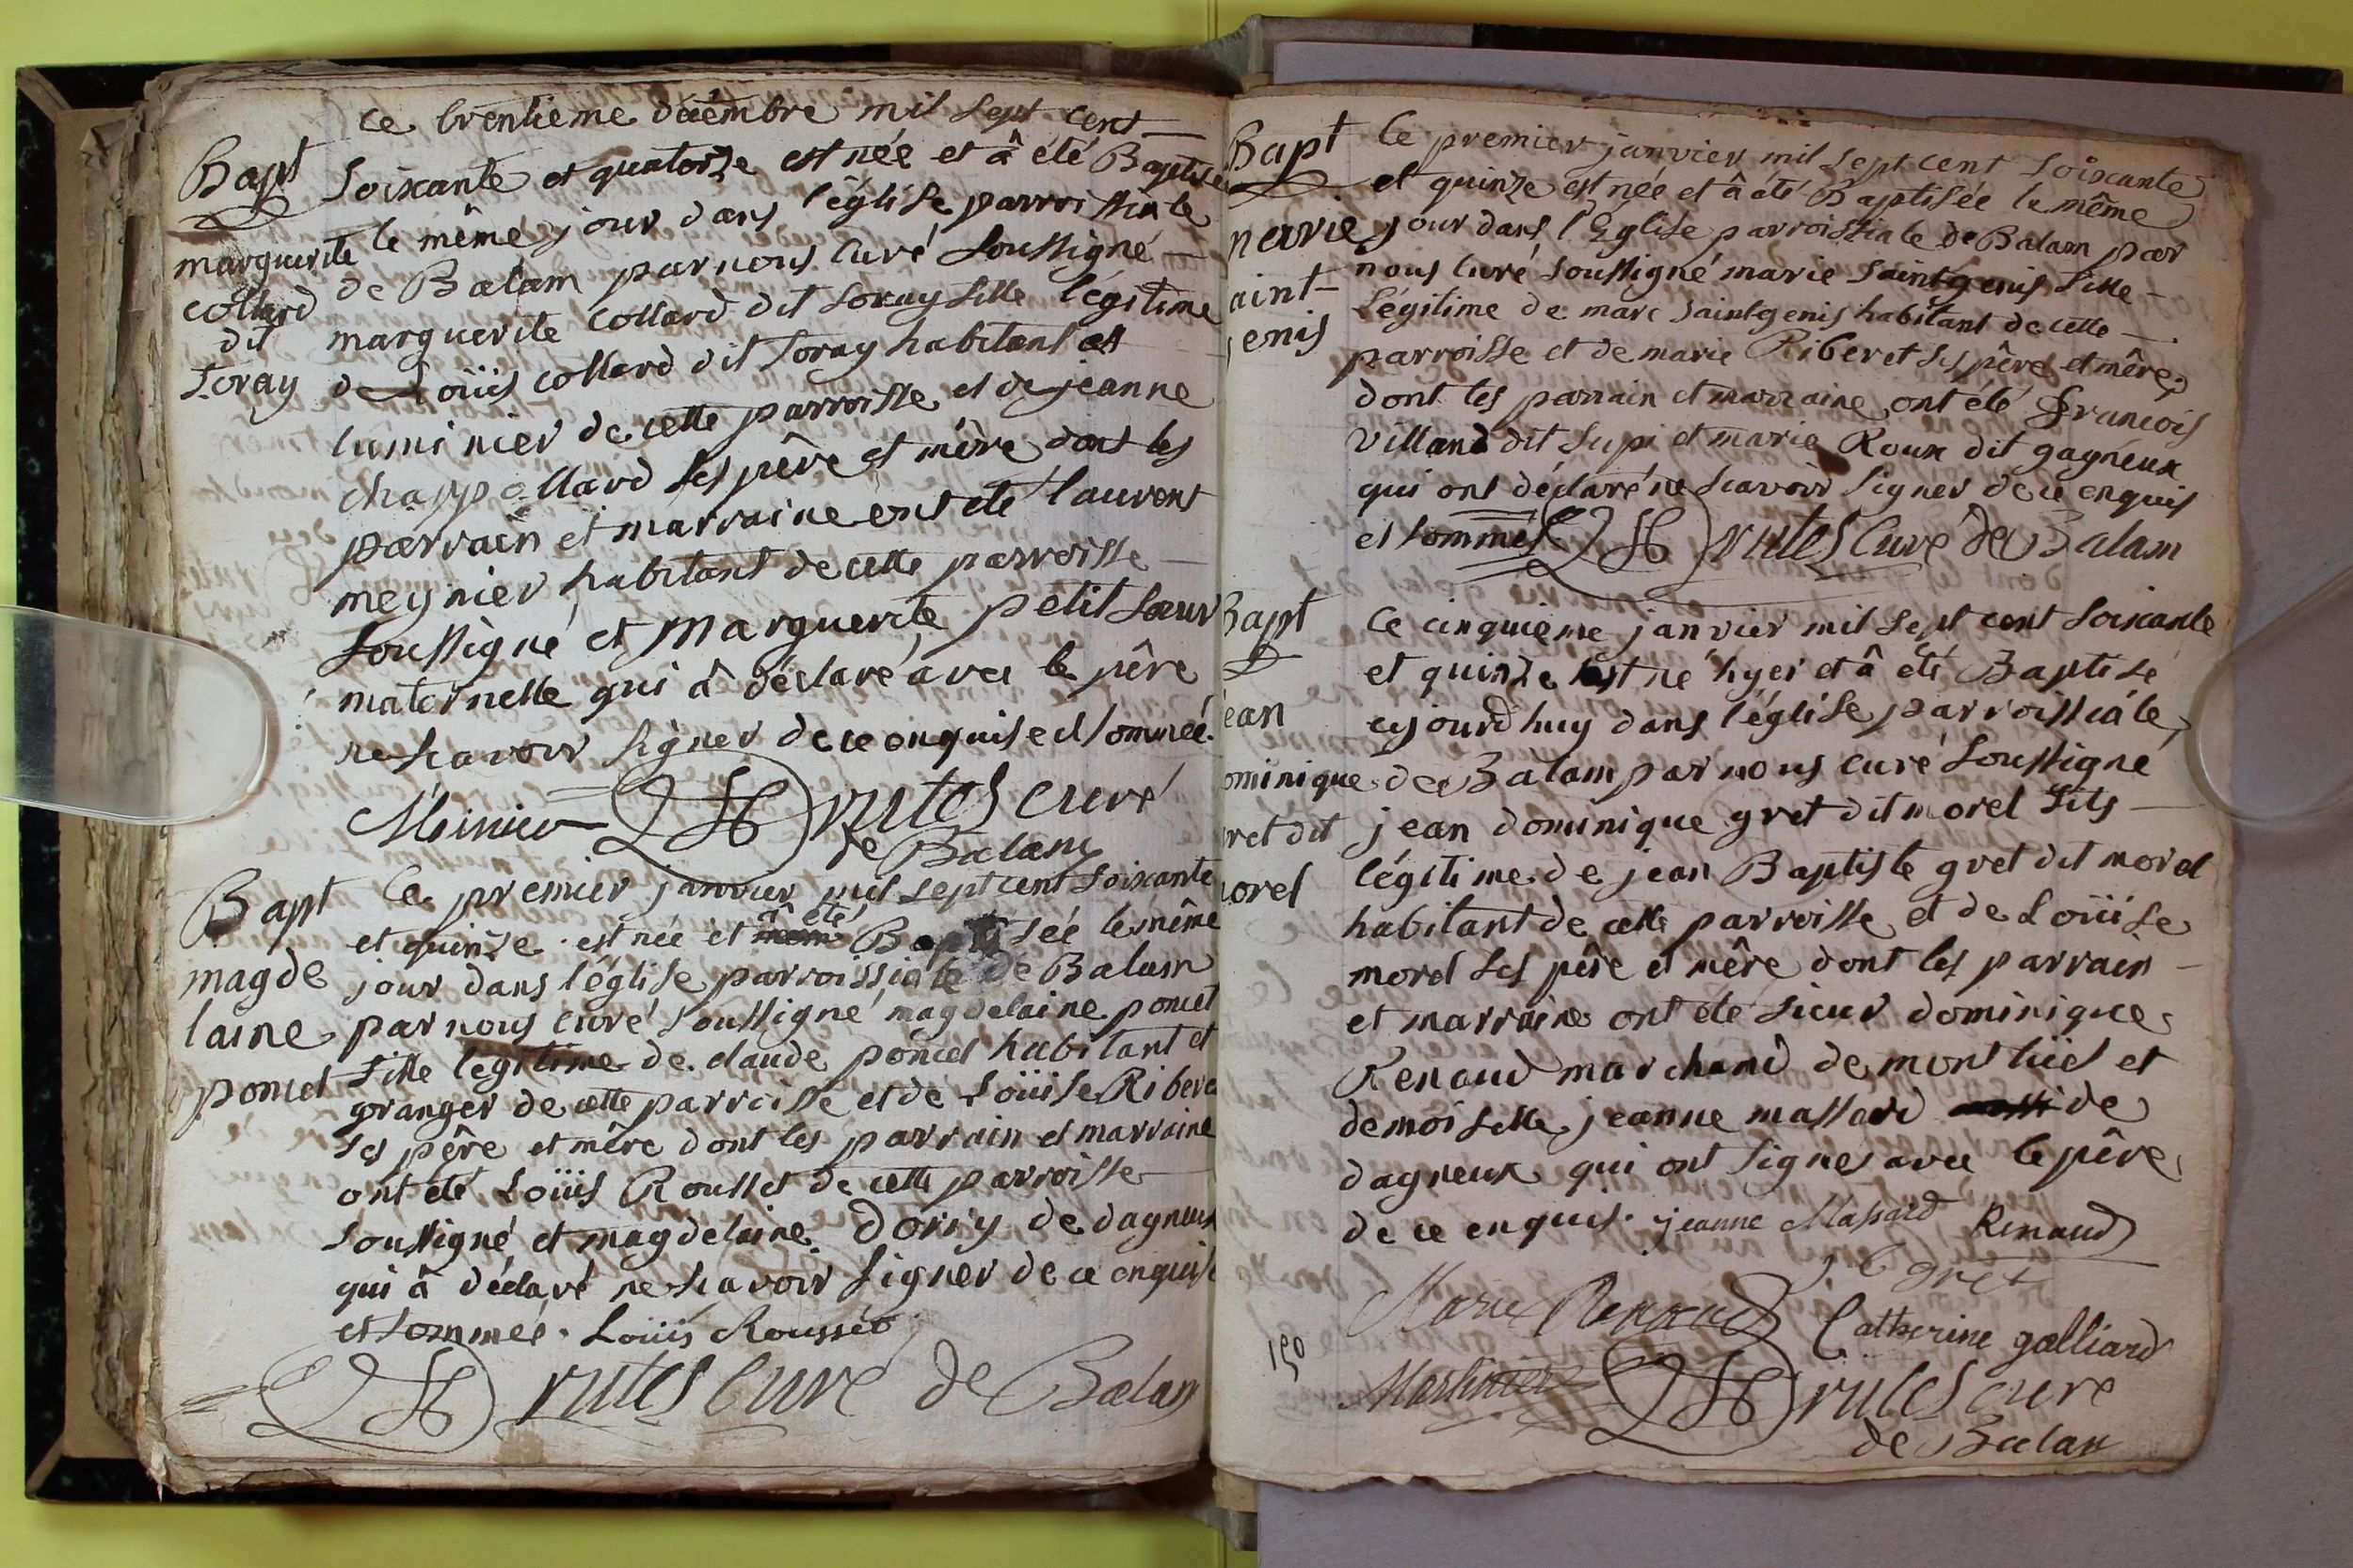 ce trentieme décembre mil sept cent
Bapt
soixante et quatorze est née et â été Baptisé
le même jour dans l'église parroissiale
marguerite
de Balam par nous curé soussigné
collard
marguerite collard dit Loray fille légitime
dit
de Loüis collard dit Loray habitant et
Loray
luminier de cette parroisse et de jeanne
chappollard ses pêre et mêre dont les
parrain et marraine ont été laurent
meynier habitant de cette parroisse
soussigné et Marguerite petit sœur
maternelle qui â déclaré avec le pêre
ne scavoir signer de ce enquise et sommée.
Méinier
rutes curé
de Balam
Bapt
Ce premier janvier mil sept cent soixante
et quinze est née et â été Baptisée le même
magde
jour dans l'église parroissiale de Balam
laine
par nous curé soussigné magdelaine poncet
poncet
fille légitime de claude poncet habitant et
granger de cette parroisse et de Loüise Ribere
ses pêre et mêre dont les parrain et marraine
ont été Loüis Rousset de cette parroisse
soussigné et magdelaine Dorry de dagneux
qui â déclaré ne scavoir signer de ce enquise
et sommée. Loüis Rousséo
rutes curé de Balam
Bapt
Ce premier janvier mil sept cent soixante
et quinze est née et â été Baptisée le même
marie
jour dans l'Eglise parroissiale de Balam par
aint
nous curé soussigné marie saintgenis fille
enis
Légitime de marc saintgenis habitant de cette
parroisse et de marie Riberet ses pêre et mêre
dont les parrain et marraine ont été François
Villand dit Lupi et marie Roux dit gagneux
qui ont déclaré ne scavoir signer de ce enquis
et sommés
rutes curé de Balam
Bapt
Ce cinquième janvier mil sept cent soixante
et quinze est né hyer et â été Baptisé
ean
cejourd'huy dans l'église parroissiale
ominique
de Balam par nous curé soussigné
ret dit
jean dominique gret dit morel fils
orel
légitime de jean Baptiste gret dit morel
habitant de cette parroisse et de Loüise
morel ses pêre et mêre dont les parrain
et marraine ont été sieur dominique
Renaud marchand de montlüel et
demoiselle jeanne massard de
dagneux qui ont signes avec le pêre
de ce enquis. jeanne Massard Renaud
J B gret
Marie Renaud
Catherine galliard
150
Martinier
rutes curé
de Balam